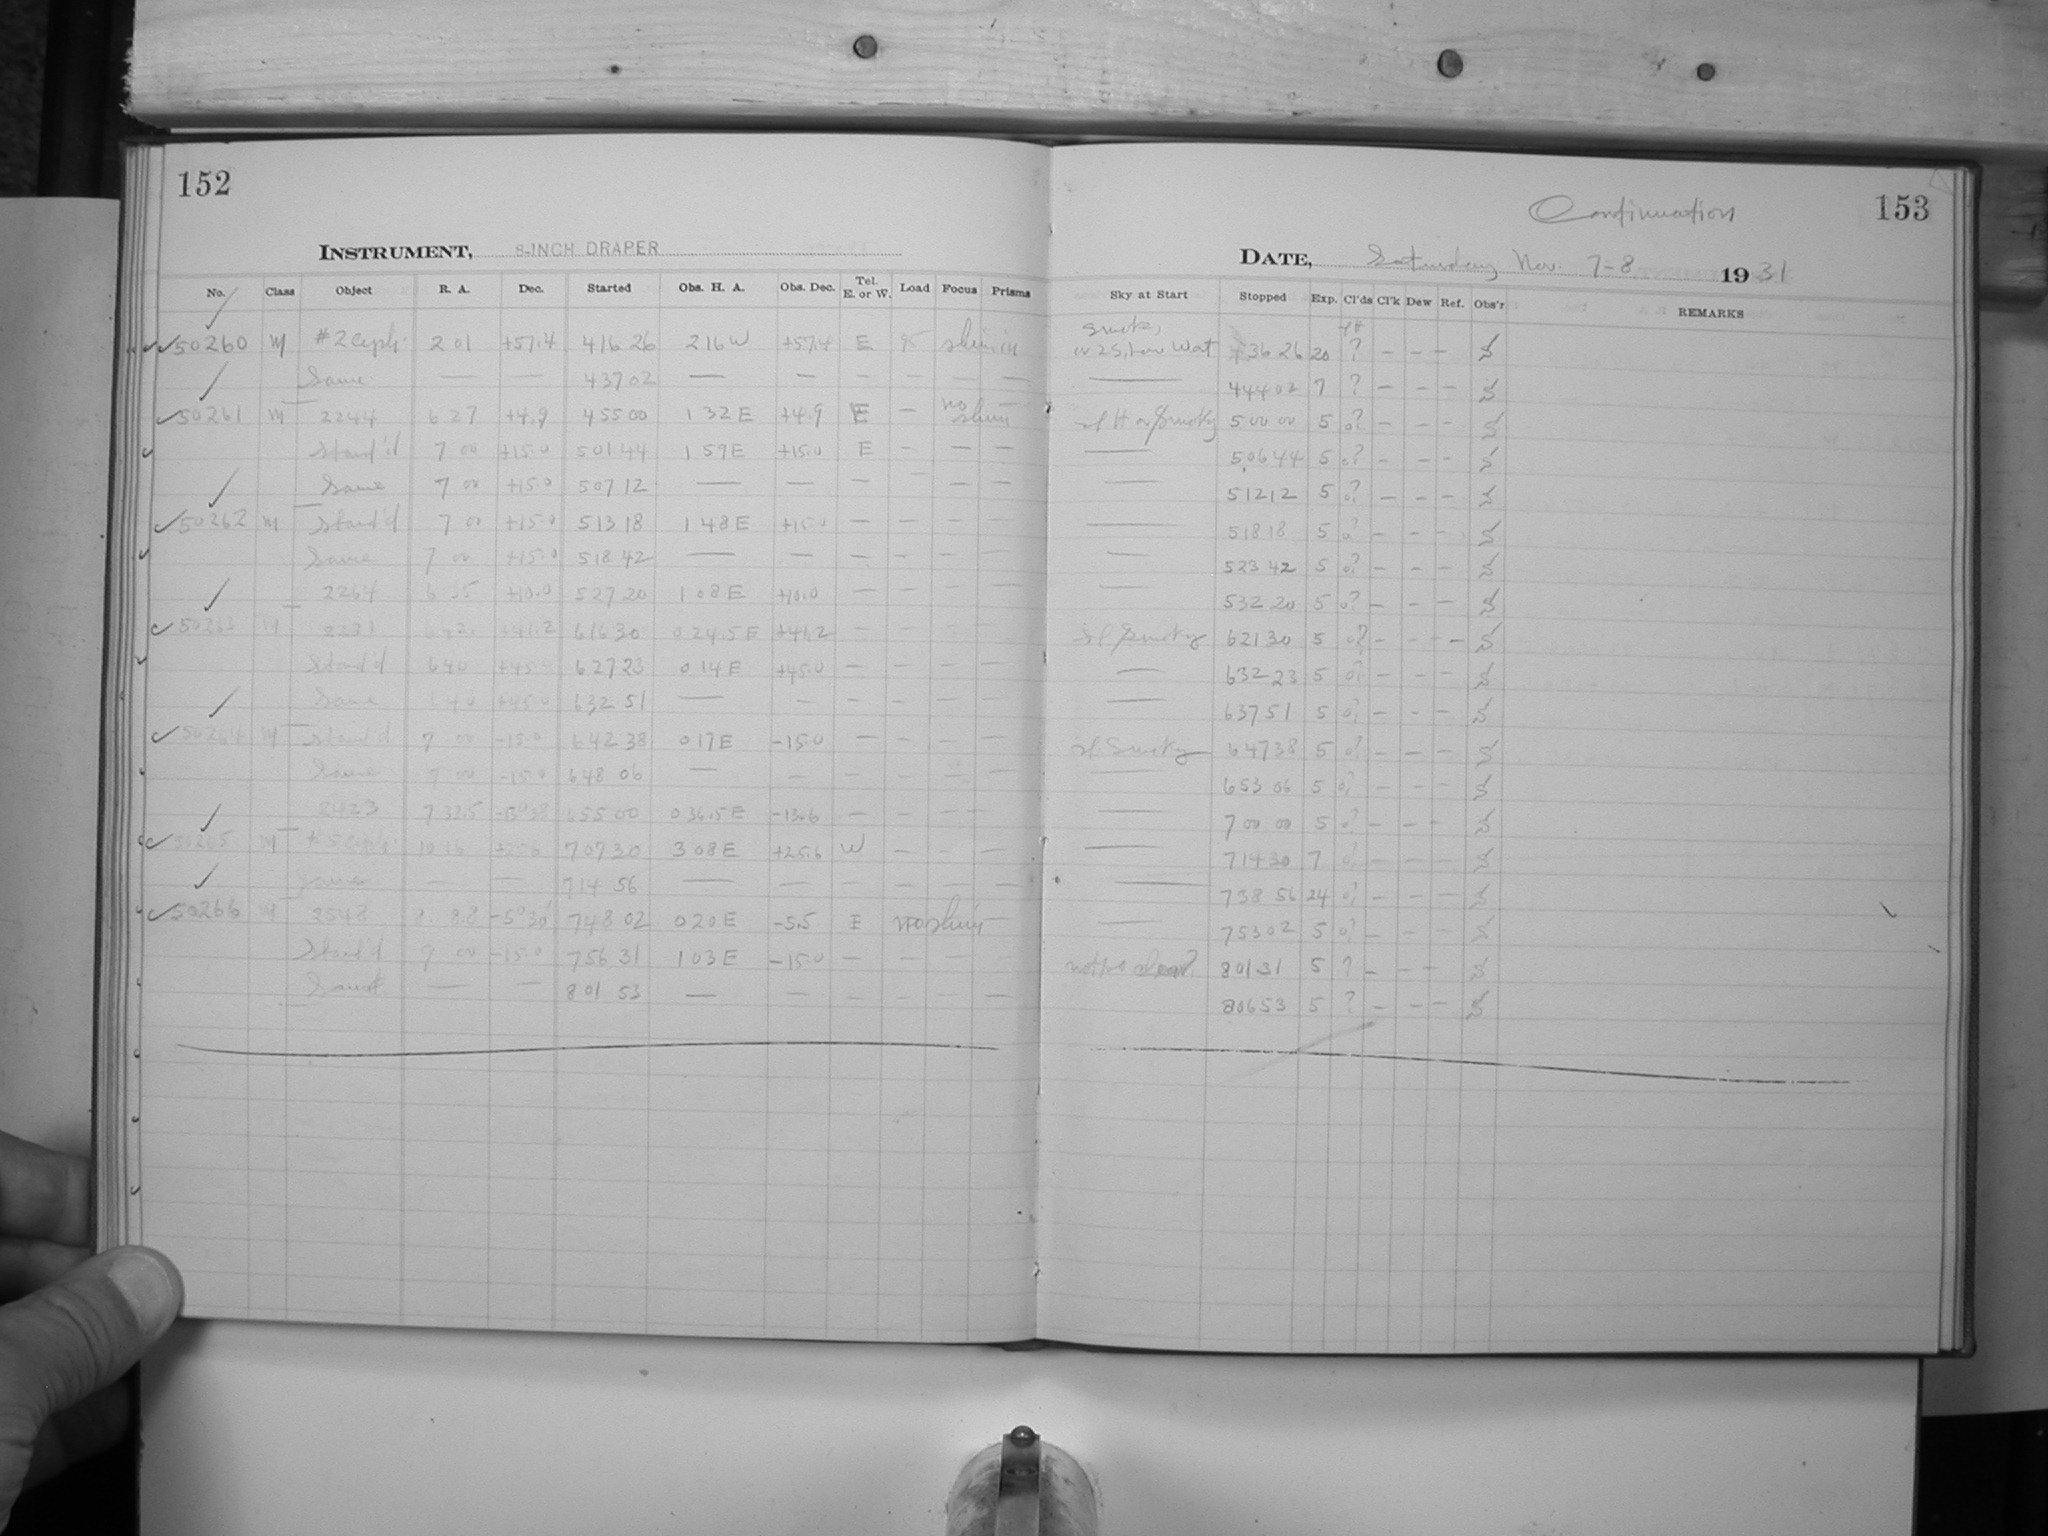 152
INSTRUMENT, 8-INCH DRAPER
No. Class Object R. A. Dec. Started Obs. H. A. Obs. Dec. Tel. E. or W. Load Focus Prisms
50260 M #2 Ceph. 2 01 +57.4 4 16 26 2 16 W +57.4 E
Same — — 4 37 02 — — — — — —
50261 M 2244 6 27 +4.9 4 55 00 1 32 E +4.9 E — no
Stand'd 7 00 +15.0 5 01 44 1 59 E +15.0 E — — —
Same 7 00 +15.0 5 07 12 — — — — —
50262 M Stand'd 7 00 +15.0 5 13 18 1 48 E +15.0 — — — —
Same 7 00 +15.0 5 18 42 — — — — — —
2264 6 35 +10.0 5 27 20 1 08 E +10.0 — — — —
50263 M 2281 +41.2 6 16 30 0 24.5 E +41.2 — — — —
Stand'd 6 40 +45.0 6 27 23 0 14 E +45.0 — — — —
Same 6 40 +45.0 6 32 51 — — — — — —
50264 M Stand'd 7 00 -15.0 6 42 38 0 17 E -15.0 — — — —
Same 7 00 -15.0 6 48 06 — — — — — —
2423 7 32.5 6 55 00 0 36.5 E -13.6 — — — —
50265 M #5 Ceph. 10 15 +25.6 7 07 30 3 08 E +25.6 W — — —
Same — — 7 14 56 — — — — — —
50266 M 2548 8. 8.8 -5°30' 7 48 02 0 20 E -5.5 E no —
Stand'd 9 00 -15.0 7 56 31 1 03 E -15.0 — — — —
Same — — 8 01 53 — — — — — —
Continuation 153
DATE, Saturday Nov. 7-8 1931
Sky at Start Stopped Exp. Cl'ds Cl'k Dew Ref. Obs'r REMARKS
4 36 26 20 ? — — — S
— 4 44 02 7 ? — — — S
sl H or Smoky 5 00 00 5 0? — — — S
— 5 06 44 5 0? — — — S
— 5 12 12 5 0? — — — S
— 5 18 18 5 0? — — — S
— 5 23 42 5 0? — — — S
— 5 32 20 5 0? — — — S
sl Smoky 6 21 30 5 0? — — — S
— 6 32 23 5 0? — — — S
— 6 37 51 5 0? — — — S
sl Smoky 6 47 38 5 0? — — — S
— 6 53 06 5 0? — — — S
— 7 00 00 5 0? — — — S
— 7 14 30 7 0? — — — S
— 7 38 56 24 0? — — — S
— 7 53 02 5 0? — — — S
not so clear? 8 01 31 5 ? — — — S
8 06 53 5 ? — — — S